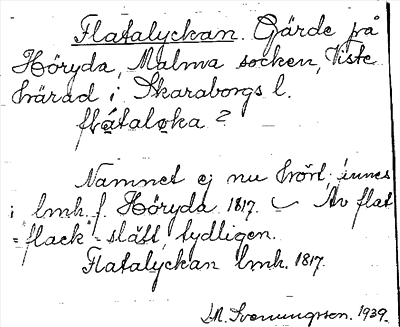 Flatalyckan. Gärde på
Höryda, Malma socken, Viste
härad i Skaraborgs l.
flátaloka 2
Namnet ej nu hört, finnes
i lmh. f. Höryda 1817. – Av flat
= flack slätt, tydligen.
Flatalyckan lmh. 1817.
Svenungsson. 1939.